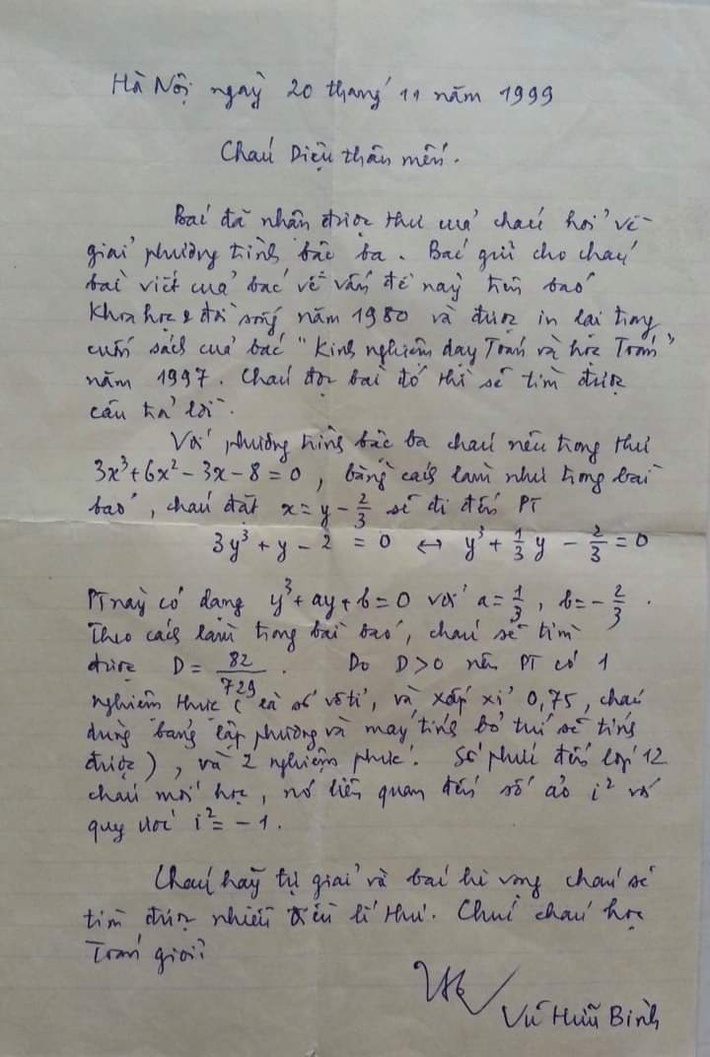 Hà Nội ngày 20 tháng 11 năm 1999
Cháu Diệu thân mến.
Bác đã nhận được thư của cháu hỏi về
giải phương trình bậc ba. Bác gửi cho cháu
bài viết của bác về vấn đề này trên báo
Khoa học & đời sống năm 1980 và được in lại trong
cuốn sách của bác "Kinh nghiệm dạy Toán và học Toán"
năm 1997. Cháu đọc bài đó thì sẽ tìm được
câu trả lời.
Với phương trình bậc ba cháu nêu trong thư
3x³ + 6x² - 3x - 8 = 0, bằng cách làm như trong bài
báo, cháu đặt x = y - 2/3 sẽ đi đến PT
3y³ + y - 2 = 0 ↔ y³ + 1/3 y - 2/3 = 0
PT này có dạng y³ + ay + b = 0 với a = 1/3, b = - 2/3.
Theo cách làm trong bài báo, cháu sẽ tìm
được D = 82/729. Do D > 0 nên PT có 1
nghiệm thực (là số vô tỉ, và xấp xỉ 0,75, cháu
dùng bảng lập phương và máy tính bỏ túi sẽ tính
được), và 2 nghiệm phức. Số phức đến lớp 12
cháu mới học, nó liên quan đến số ảo i² với
quy ước i² = - 1.
Cháu hãy tự giải và bác hi vọng cháu sẽ
tìm được nhiều điều lí thú. Chúc cháu học
Toán giỏi!
Vũ Hữu Bình